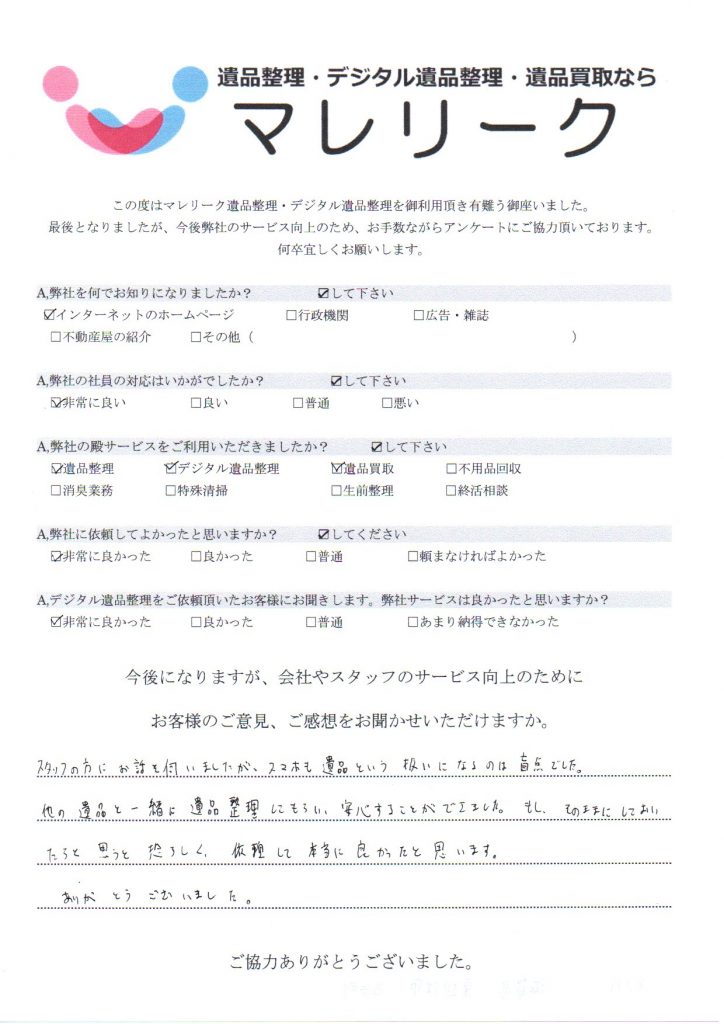 遺品整理・デジタル遺品整理・遺品買取なら
マレリーク
この度はマレリーク遺品整理・デジタル遺品整理を御利用頂き有難う御座いました。
最後となりましたが、今後弊社のサービス向上のため、お手数ながらアンケートにご協力頂いております。
何卒宜しくお願いします。
A,弊社を何でお知りになりましたか？ ☑して下さい
☑インターネットのホームページ □行政機関 □広告・雑誌
□不動産屋の紹介 □その他（ ）
A,弊社の社員の対応はいかがでしたか？ ☑して下さい
☑非常に良い □良い □普通 □悪い
A,弊社の殿サービスをご利用いただきましたか？ ☑して下さい
☑遺品整理 ☑デジタル遺品整理 ☑遺品買取 □不用品回収
□消臭業務 □特殊清掃 □生前整理 □終活相談
A,弊社に依頼してよかったと思いますか？ ☑してください
☑非常に良かった □良かった □普通 □頼まなければよかった
A,デジタル遺品整理をご依頼頂いたお客様にお聞きします。弊社サービスは良かったと思いますか？
☑非常に良かった □良かった □普通 □あまり納得できなかった
今後になりますが、会社やスタッフのサービス向上のために
お客様のご意見、ご感想をお聞かせいただけますか。
スタッフの方にお話を伺いましたが、スマホも遺品という扱いになるのは盲点でした。
他の遺品と一緒に遺品整理してもらい、安心することができました。もし、そのままにしておい
たらと思うと恐ろしく、依頼して本当に良かったと思います。
ありがとうございました。
ご協力ありがとうございました。